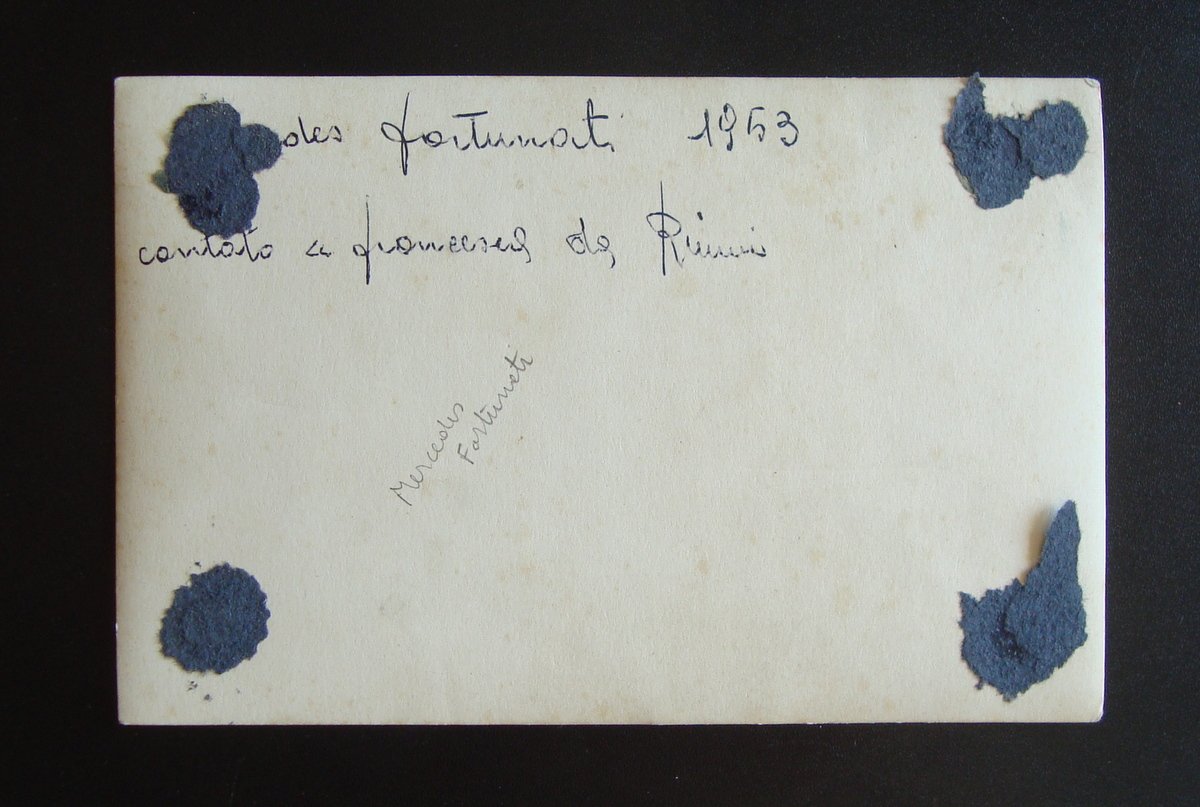 des Fortunati 1953
cantato a Francesca da Rimini
Mercedes
Fortunati